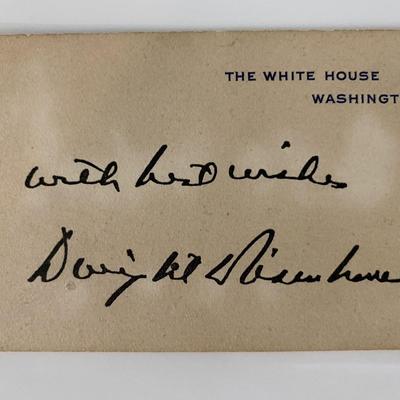 THE WHITE HOUSE
WASHINGT
with best wishes
Dwight D Eisenhowe